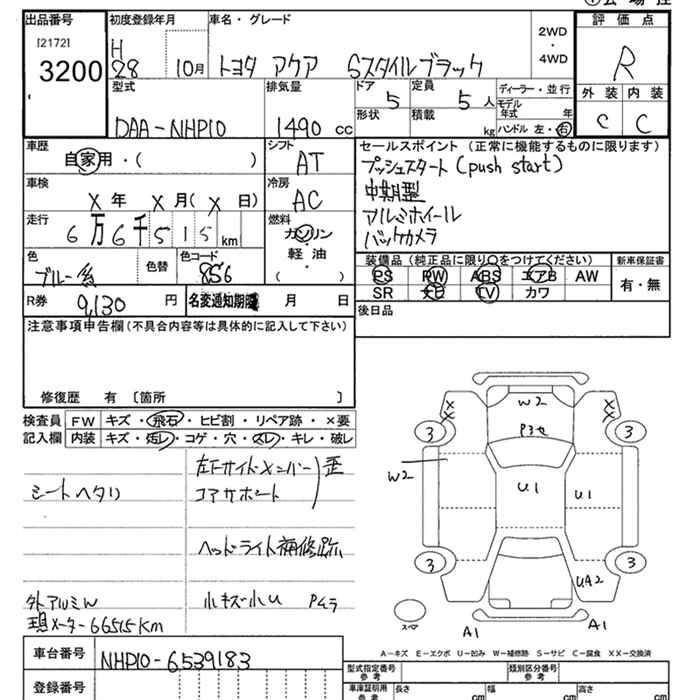 出品番号 初度登録年月 車名・グレード 2WD・4WD 評価点
[2172]
3200
H 28 10月 トヨタ アクア Sスタイルブラック R
型式 排気量 ドア 5 定員 5 人 ディーラー・並行 外装 内装
DAA-NHP10 1490 cc 形状 積載 kg モデル年式 年 C C
ハンドル 左・右
車歴 シフト セールスポイント (正常に機能するものに限ります)
自家用・( ) AT プッシュスタート (push start)
車検 冷房 中期型
X 年 X 月 ( X 日) AC アルミホイール
走行 燃料 バックカメラ
6万6千515km ガソリン・軽油・( )
色 色替 色コード 装備品 (純正品に限り○をつけてください) 新車保証書
ブルー系 856 PS PW ABS エアB AW 有・無
SR ナビ TV カワ
R券 9,130 円 名変通知期限 月 日 後日品
注意事項申告欄 (不具合内容等は具体的に記入して下さい)
修復歴 有 〔箇所 〕
検査員 FW キズ・飛石・ヒビ割・リペア跡・×要
記入欄 内装 キズ・汚レ・コゲ・穴・スレ・キレ・破レ
左F サイドメンバー 歪
シートヘタリ コアサポート
ヘッドライト補修跡
外アルミW 小キズ小U PAラ
現メーター 66515km
W2
P3セ
X X
X X
3 3
W2
U1 U1
3 3
UA2
スペア
A1 A1
A-キズ E-エクボ U-凹み W-補修跡 S-サビ C-腐食 XX-交換済
車台番号 NHP10-6539183
型式指定番号 参考 類別区分番号 参考
登録番号 車庫証明用 参考 長さ cm 幅 cm 高さ cm